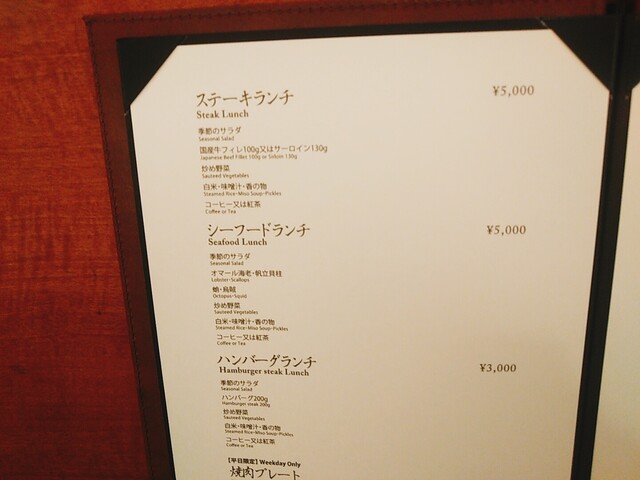 ステーキランチ ¥5,000
Steak Lunch
季節のサラダ
Seasonal Salad
国産牛フィレ100g又はサーロイン130g
Japanese Beef Fillet 100g or Sirloin 130g
炒め野菜
Sauteed Vegetables
白米・味噌汁・香の物
Steamed Rice・Miso Soup・Pickles
コーヒー又は紅茶
Coffee or Tea
シーフードランチ ¥5,000
Seafood Lunch
季節のサラダ
Seasonal Salad
オマール海老・帆立貝柱
Lobster・Scallops
蛸・烏賊
Octopus・Squid
炒め野菜
Sauteed Vegetables
白米・味噌汁・香の物
Steamed Rice・Miso Soup・Pickles
コーヒー又は紅茶
Coffee or Tea
ハンバーグランチ ¥3,000
Hamburger steak Lunch
季節のサラダ
Seasonal Salad
ハンバーグ200g
Hamburger steak 200g
炒め野菜
Sauteed Vegetables
白米・味噌汁・香の物
Steamed Rice・Miso Soup・Pickles
コーヒー又は紅茶
Coffee or Tea
【平日限定】Weekday Only
焼肉プレート